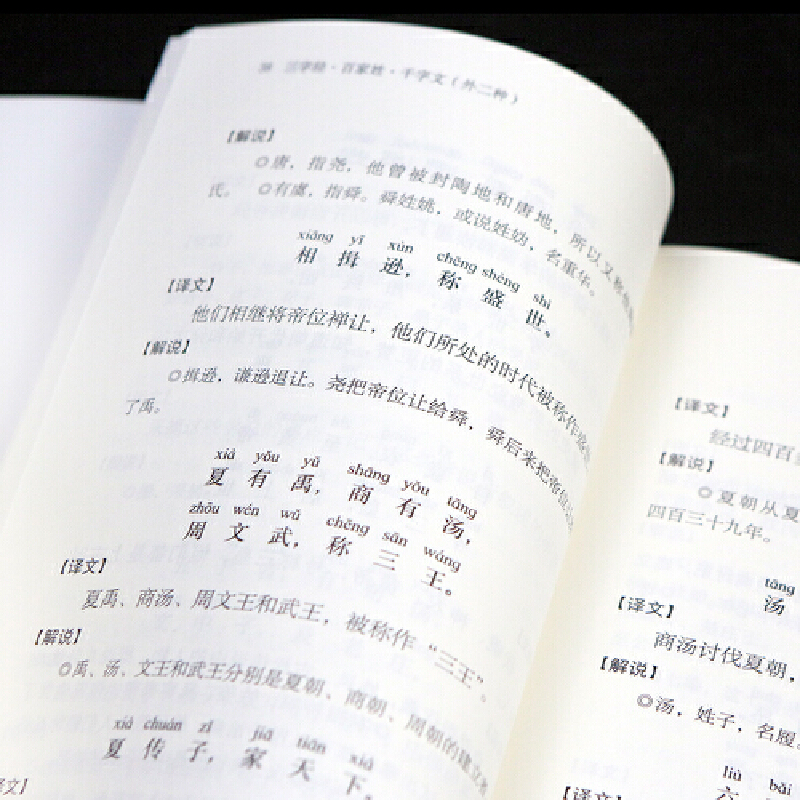 三字经·百家姓·千字文（外二种）
【解说】
◎唐，指尧，他曾被封陶地和唐地，所以又称
氏。 ◎有虞，指舜。舜姓姚，或说姓妫，名重华。
xiāng yī xùn chēng shèng shì
相揖逊，称盛世。
【译文】
他们相继将帝位禅让，他们所处的时代被称作
【解说】
◎揖逊，谦逊退让。尧把帝位让给舜，舜后来把帝位
了禹。
xià yǒu yǔ shāng yǒu tāng
夏有禹，商有汤，
zhōu wén wǔ chēng sān wáng
周文武，称三王。
【译文】
夏禹、商汤、周文王和武王，被称作“三王”。
【解说】
◎禹、汤、文王和武王分别是夏朝、商朝、周朝的建立者
xià chuán zǐ jiā tiān xià
夏传子，家天下，
译文】
【译文】
经过四百
【解说】
◎夏朝从夏
四百三十九年。
tāng
汤
【译文】
商汤讨伐夏朝，
【解说】
◎汤，姓子，名履。
liù bǎi
六
【译文】